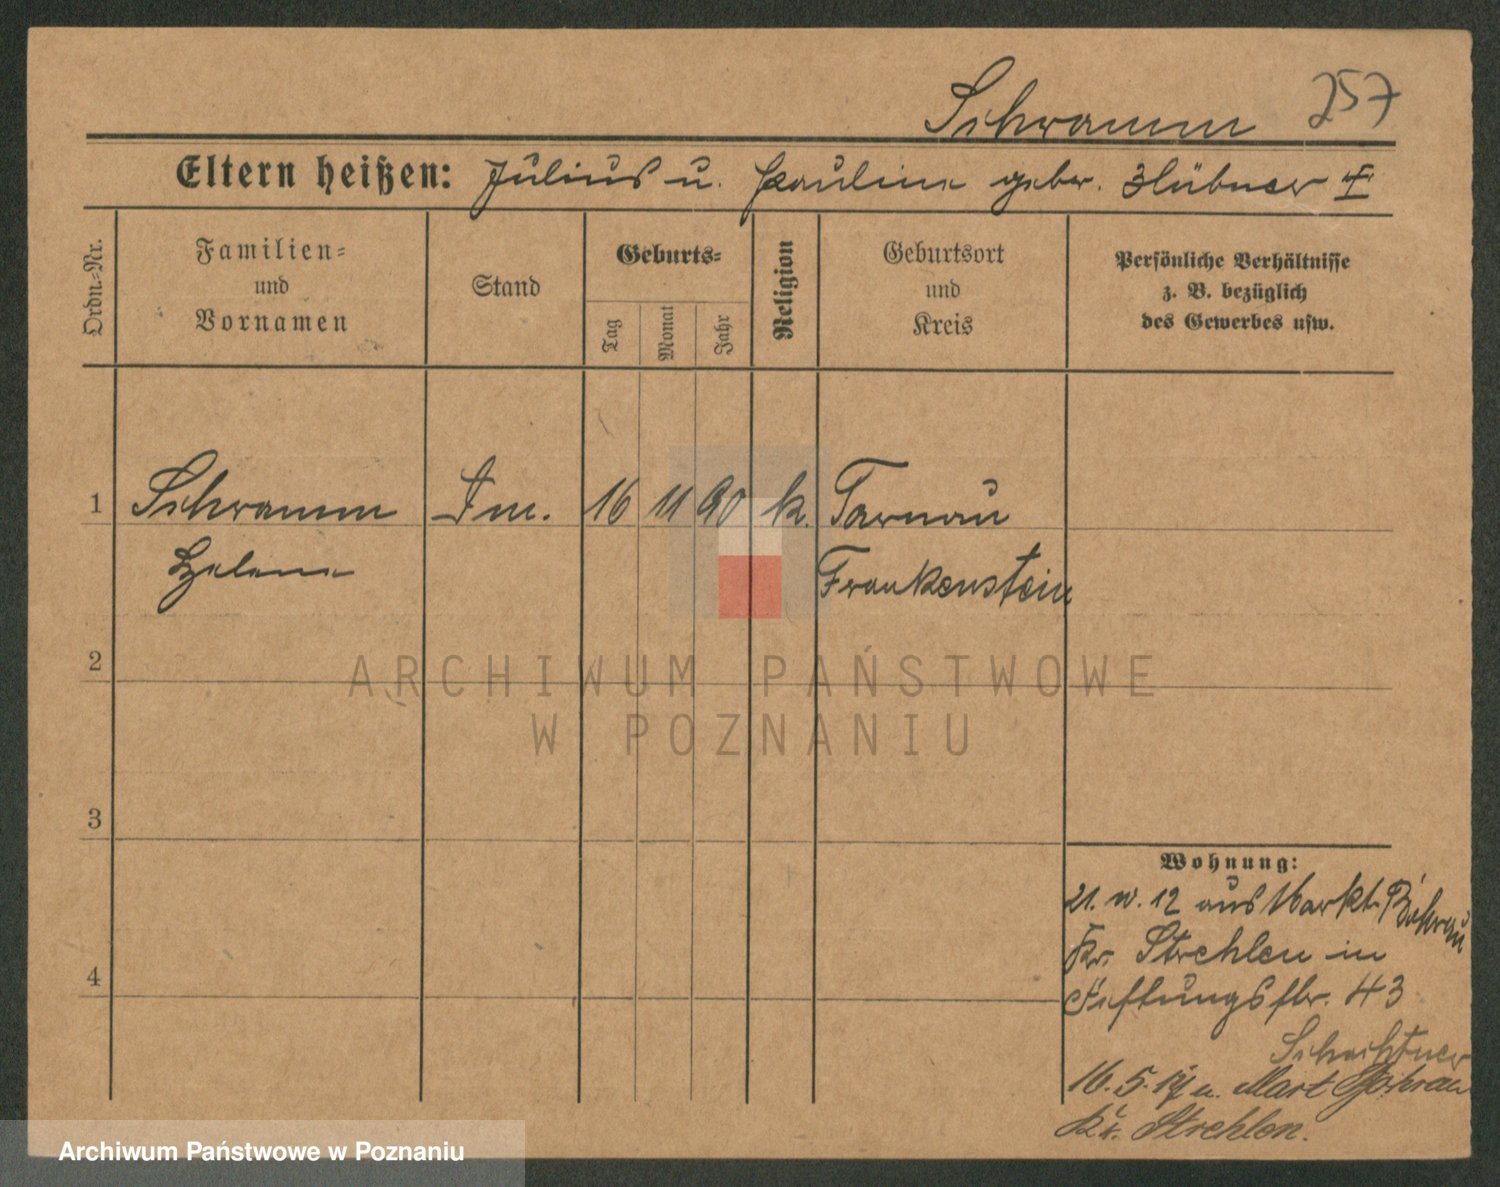 Schramm 257
Eltern heißen: Julius u. Pauline gebor. Hübner
Ordn.-Nr.
Familien-
und
Vornamen
Stand
Geburts-
Tag
Monat
Jahr
Religion
Geburtsort
und
Kreis
Persönliche Verhältnisse
z. B. bezüglich
des Gewerbes usw.
1 Schramm 16 11 90 k. Tarnau
Helene Frankenstein
2
ARCHIWUM PAŃSTWOWE
W POZNANIU
3
4
Wohnung:
21. 12 aus Markt-Bohrau
Kr. Strehlen in
43
Schachtner
16. 5. n. Markt Bohrau
Kr. Strehlen.
Archiwum Państwowe w Poznaniu